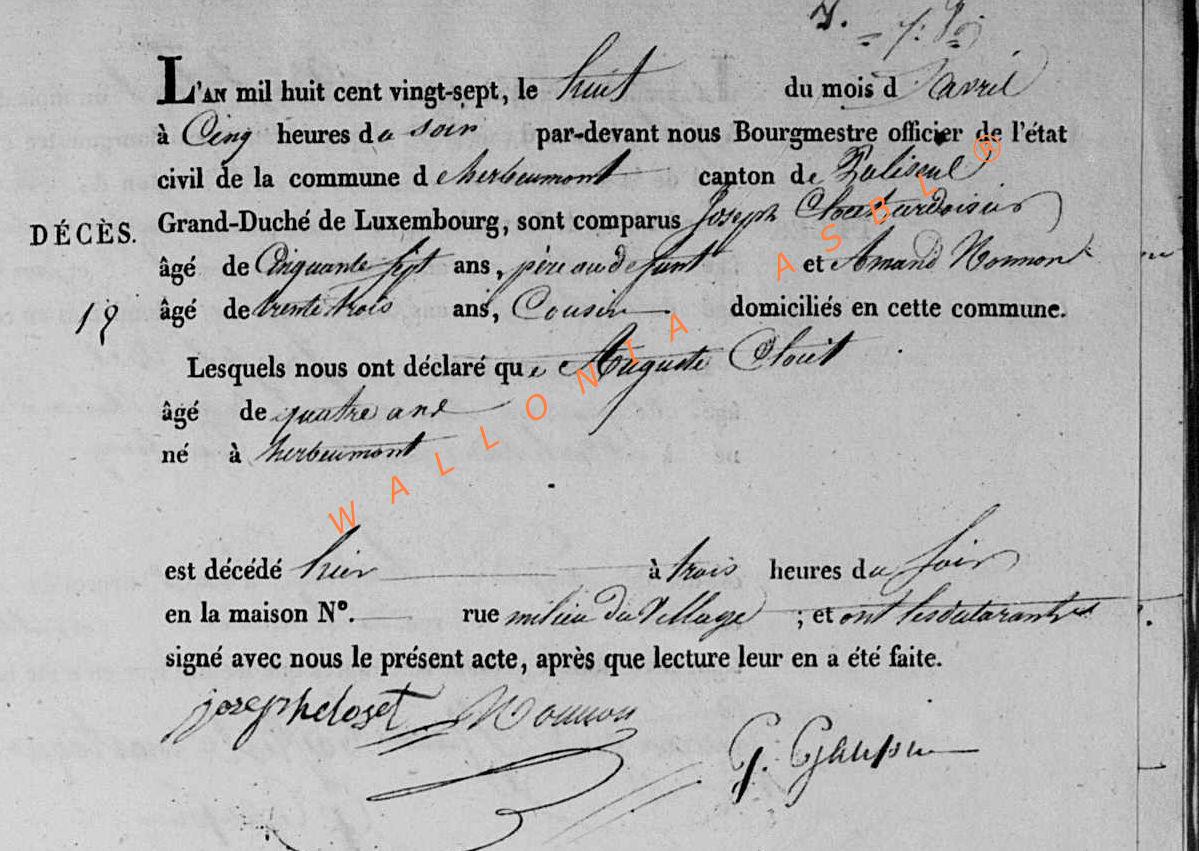 L'AN mil huit cent vingt-sept, le huit du mois d'avril
à Cinq heures du soir par-devant nous Bourgmestre officier de l'état
civil de la commune d'herbeumont canton de Paliseul
DÉCÈS. Grand-Duché de Luxembourg, sont comparus Joseph
âgé de Cinquante sept ans, père au defunt et Amand Nonnon
18 âgé de trente trois ans, Cousin domiciliés en cette commune.
Lesquels nous ont déclaré que Auguste
âgé de quatre ans
né à herbeumont
est décédé hier à trois heures du soir
en la maison N°. rue milieu du Village ; et ont les
signé avec nous le présent acte, après que lecture leur en a été faite.
joseph closet Nonnon
G.
WALLONIA ASBL ®